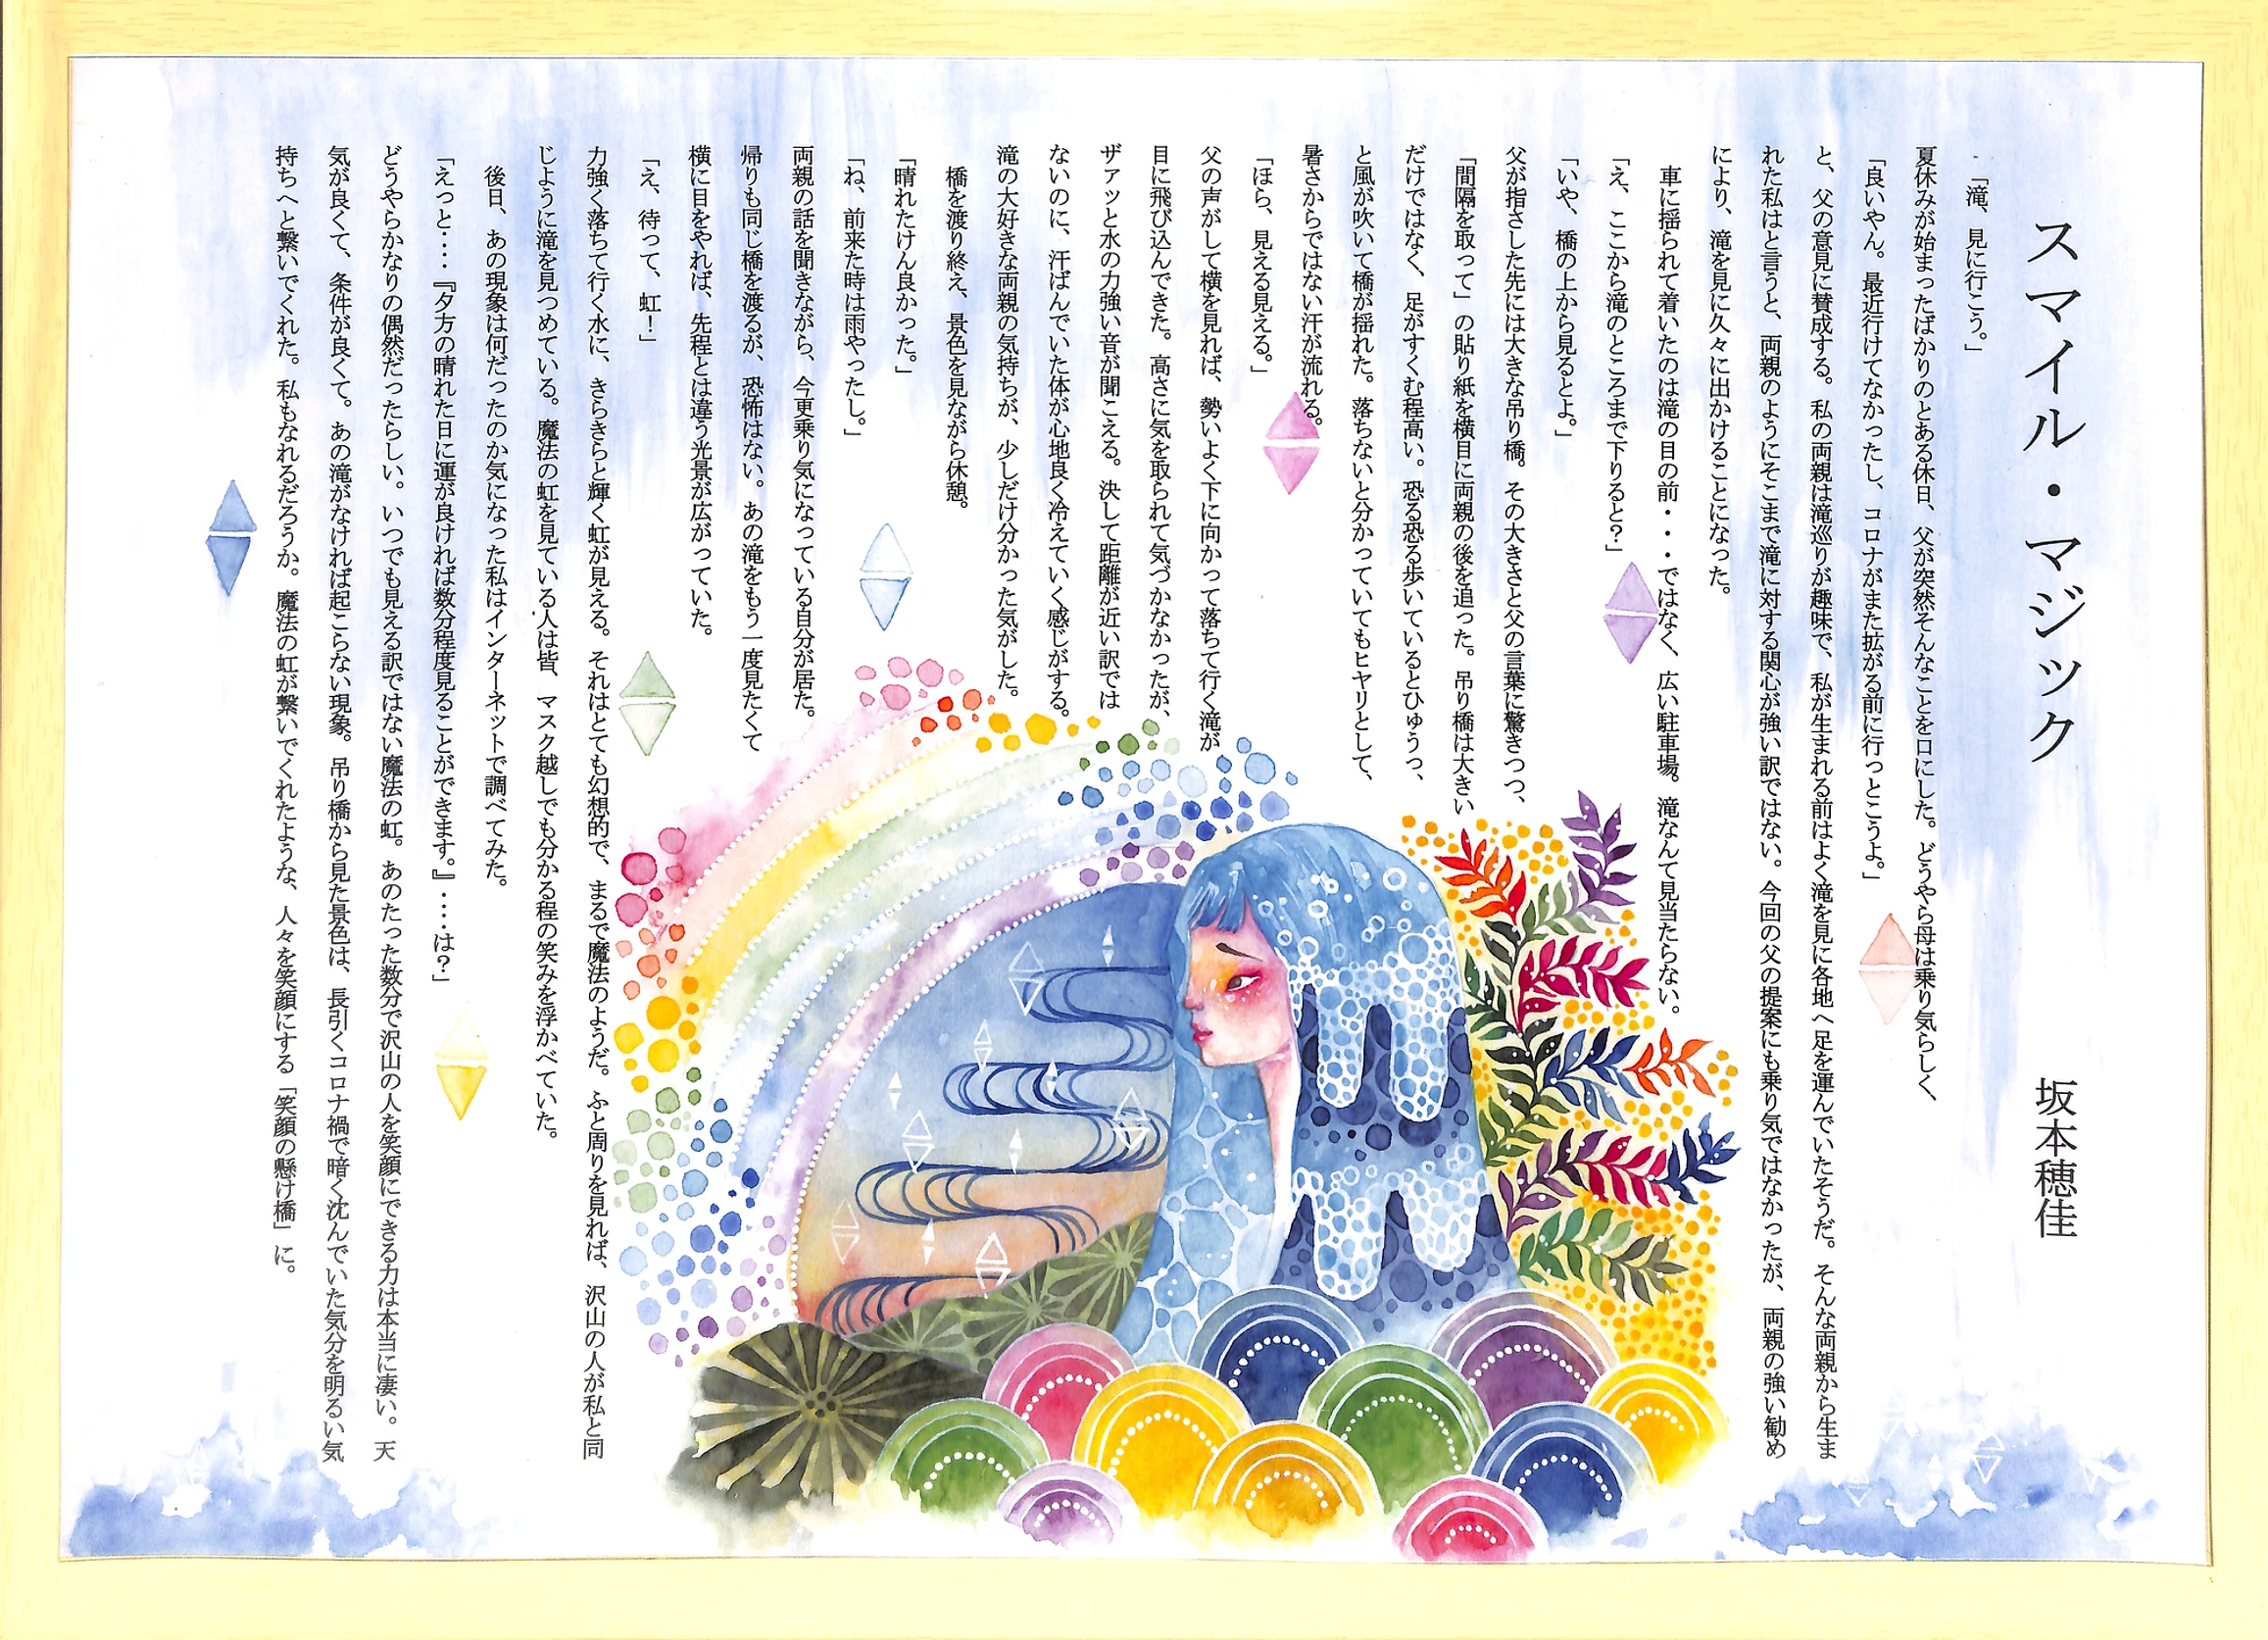 スマイル・マジック
坂本穂佳
「滝、見に行こう。」
夏休みが始まったばかりのとある休日、父が突然そんなことを口にした。どうやら母は乗り気らしく、
「良いやん。最近行けてなかったし、コロナがまた拡がる前に行っとこうよ。」
と、父の意見に賛成する。私の両親は滝巡りが趣味で、私が生まれる前はよく滝を見に各地へ足を運んでいたそうだ。そんな両親から生ま
れた私はと言うと、両親のようにそこまで滝に対する関心が強い訳ではない。今回の父の提案にも乗り気ではなかったが、両親の強い勧め
により、滝を見に久々に出かけることになった。
車に揺られて着いたのは滝の目の前・・・ではなく、広い駐車場。滝なんて見当たらない。
「え、ここから滝のところまで下りると？」
「いや、橋の上から見るとよ。」
父が指さした先には大きな吊り橋。その大きさと父の言葉に驚きつつ、
「間隔を取って」の貼り紙を横目に両親の後を追った。吊り橋は大きい
だけではなく、足がすくむ程高い。恐る恐る歩いているとひゅうっ、
と風が吹いて橋が揺れた。落ちないと分かっていてもヒヤリとして、
暑さからではない汗が流れる。
「ほら、見える見える。」
父の声がして横を見れば、勢いよく下に向かって落ちて行く滝が
目に飛び込んできた。高さに気を取られて気づかなかったが、
ザァッと水の力強い音が聞こえる。決して距離が近い訳では
ないのに、汗ばんでいた体が心地良く冷えていく感じがする。
滝の大好きな両親の気持ちが、少しだけ分かった気がした。
橋を渡り終え、景色を見ながら休憩。
「晴れたけん良かった。」
「ね、前来た時は雨やったし。」
両親の話を聞きながら、今更乗り気になっている自分が居た。
帰りも同じ橋を渡るが、恐怖はない。あの滝をもう一度見たくて
横に目をやれば、先程とは違う光景が広がっていた。
「え、待って、虹！」
力強く落ちて行く水に、きらきらと輝く虹が見える。それはとても幻想的で、まるで魔法のようだ。ふと周りを見れば、沢山の人が私と同
じように滝を見つめている。魔法の虹を見ている人は皆、マスク越しでも分かる程の笑みを浮かべていた。
後日、あの現象は何だったのか気になった私はインターネットで調べてみた。
「えっと‥‥『夕方の晴れた日に運が良ければ数分程度見ることができます。』‥‥は？」
どうやらかなりの偶然だったらしい。いつでも見える訳ではない魔法の虹。あのたった数分で沢山の人を笑顔にできる力は本当に凄い。天
気が良くて、条件が良くて。あの滝がなければ起こらない現象。吊り橋から見た景色は、長引くコロナ禍で暗く沈んでいた気分を明るい気
持ちへと繋いでくれた。私もなれるだろうか。魔法の虹が繋いでくれたような、人々を笑顔にする「笑顔の懸け橋」に。